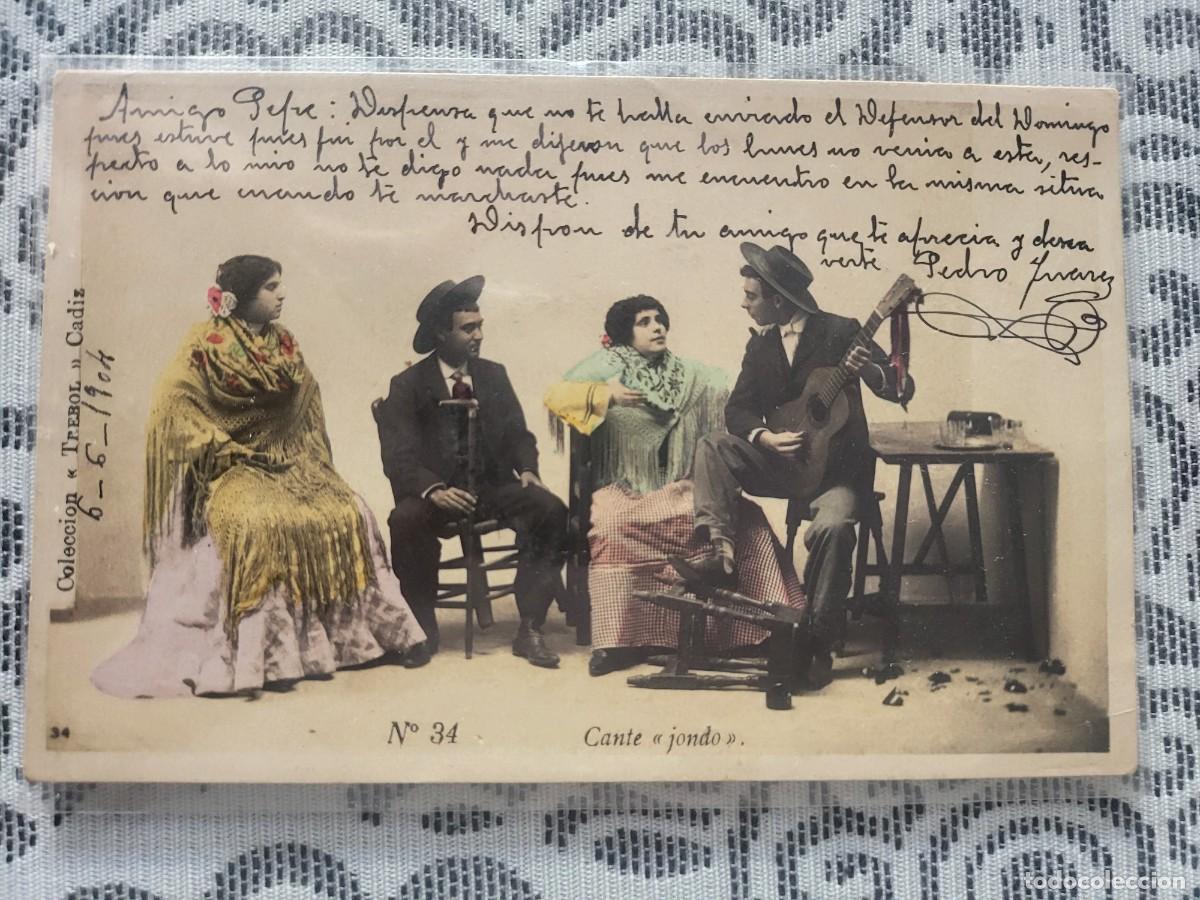 Amigo Pepe: Dispensa que no te halla enviado el Defensor del Domingo
pues estuve pues fui por el y me digeron que los lunes no venia a esta, res-
pecto a lo mio no te digo nada pues me encuentro en la misma situa
cion que cuando te marchaste.
Dispon de tu amigo que te aprecia y desea
verte Pedro Juarez
Coleccion « TREBOL » Cadiz
6-5-1904
34
Nº 34
Cante « jondo ».
todocoleccion